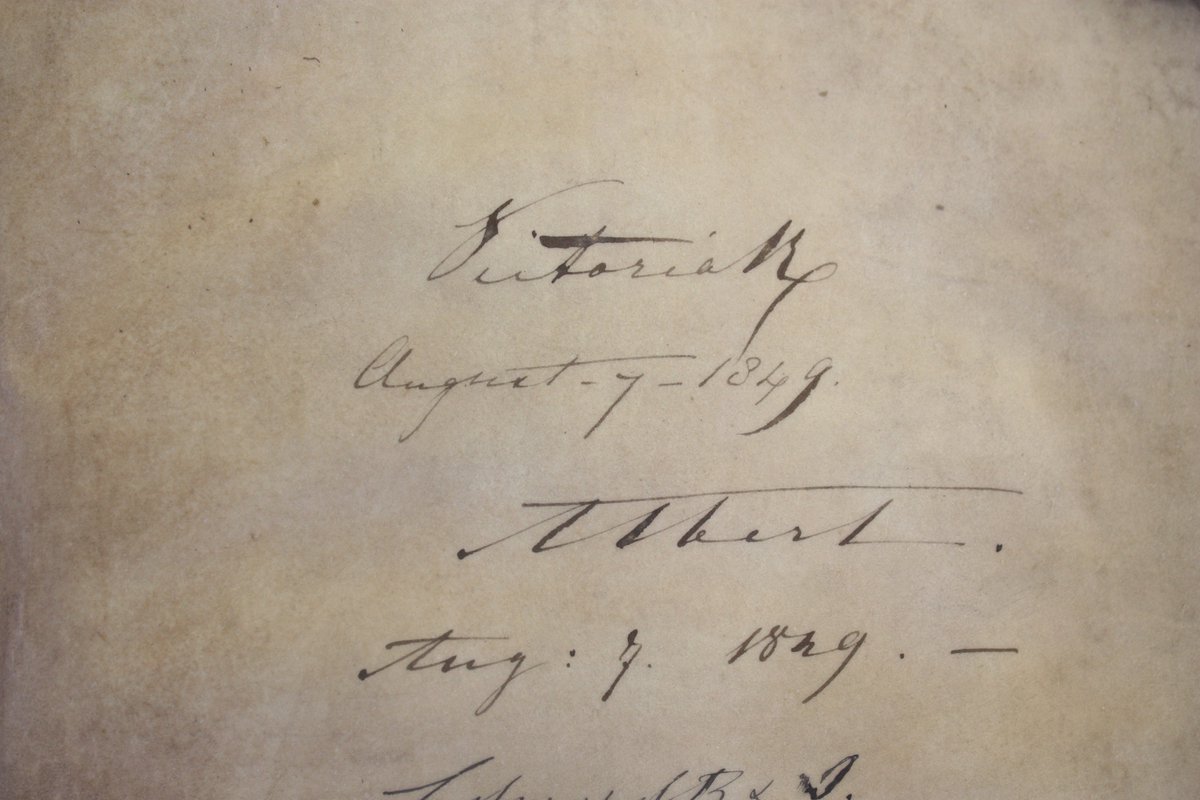 Victoria R
August - 7 - 1849.
Albert.
Aug: 7. 1849. —
Edward R & I.